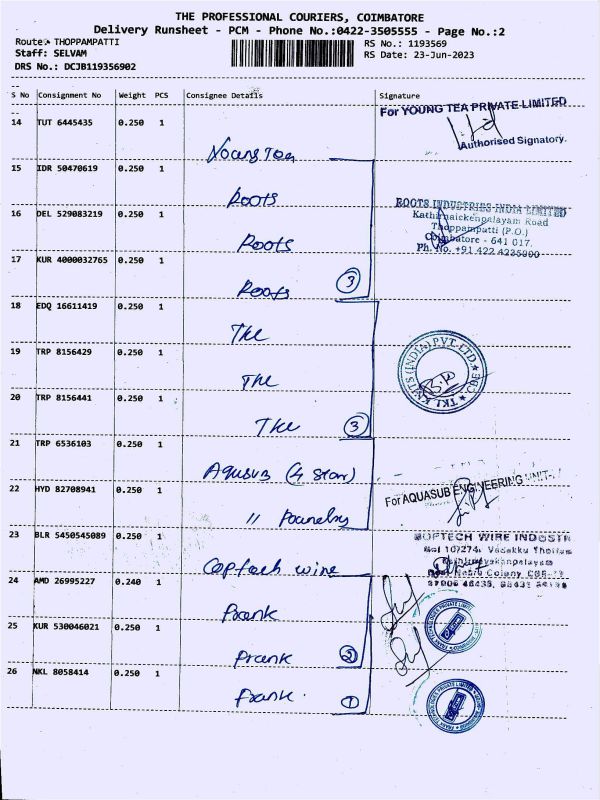 THE PROFESSIONAL COURIERS, COIMBATORE
Delivery Runsheet - PCM - Phone No.:0422-3505555 - Page No.:2
Route:- THOPPAMPATTI
RS No.: 1193569
Staff: SELVAM
RS Date: 23-Jun-2023
DRS No.: DCJB119356902
S No Consignment No Weight PCS Consignee Details Signature
14 TUT 6445435 0.250 1
For YOUNG TEA PRIVATE LIMITED
Authorised Signatory.
Young Tea
15 IDR 50470619 0.250 1
Roots
ROOTS INDUSTRIES INDIA LIMITED
Kathirnaickenpalayam Road
Thoppampatti (P.O.)
Coimbatore - 641 017.
Ph. No. +91 422 4225000
16 DEL 529083219 0.250 1
Roots
17 KUR 4000032765 0.250 1
Roots 3
18 EDQ 16611419 0.250 1
TKL
19 TRP 8156429 0.250 1
TKL
TKL KNITS (INDIA) PVT. LTD. CBE
20 TRP 8156441 0.250 1
TKL 3
21 TRP 6536103 0.250 1
Aqusub (4 Star)
22 HYD 82708941 0.250 1
For AQUASUB ENGINEERING UNIT-
" Foundry
23 BLR 5450545089 0.250 1
COPTECH WIRE INDUSTR
Coptech wire
24 AMD 26995227 0.240 1
Frank
25 KUR 530046021 0.250 1
Frank 2
26 NKL 8058414 0.250 1
Frank. 1